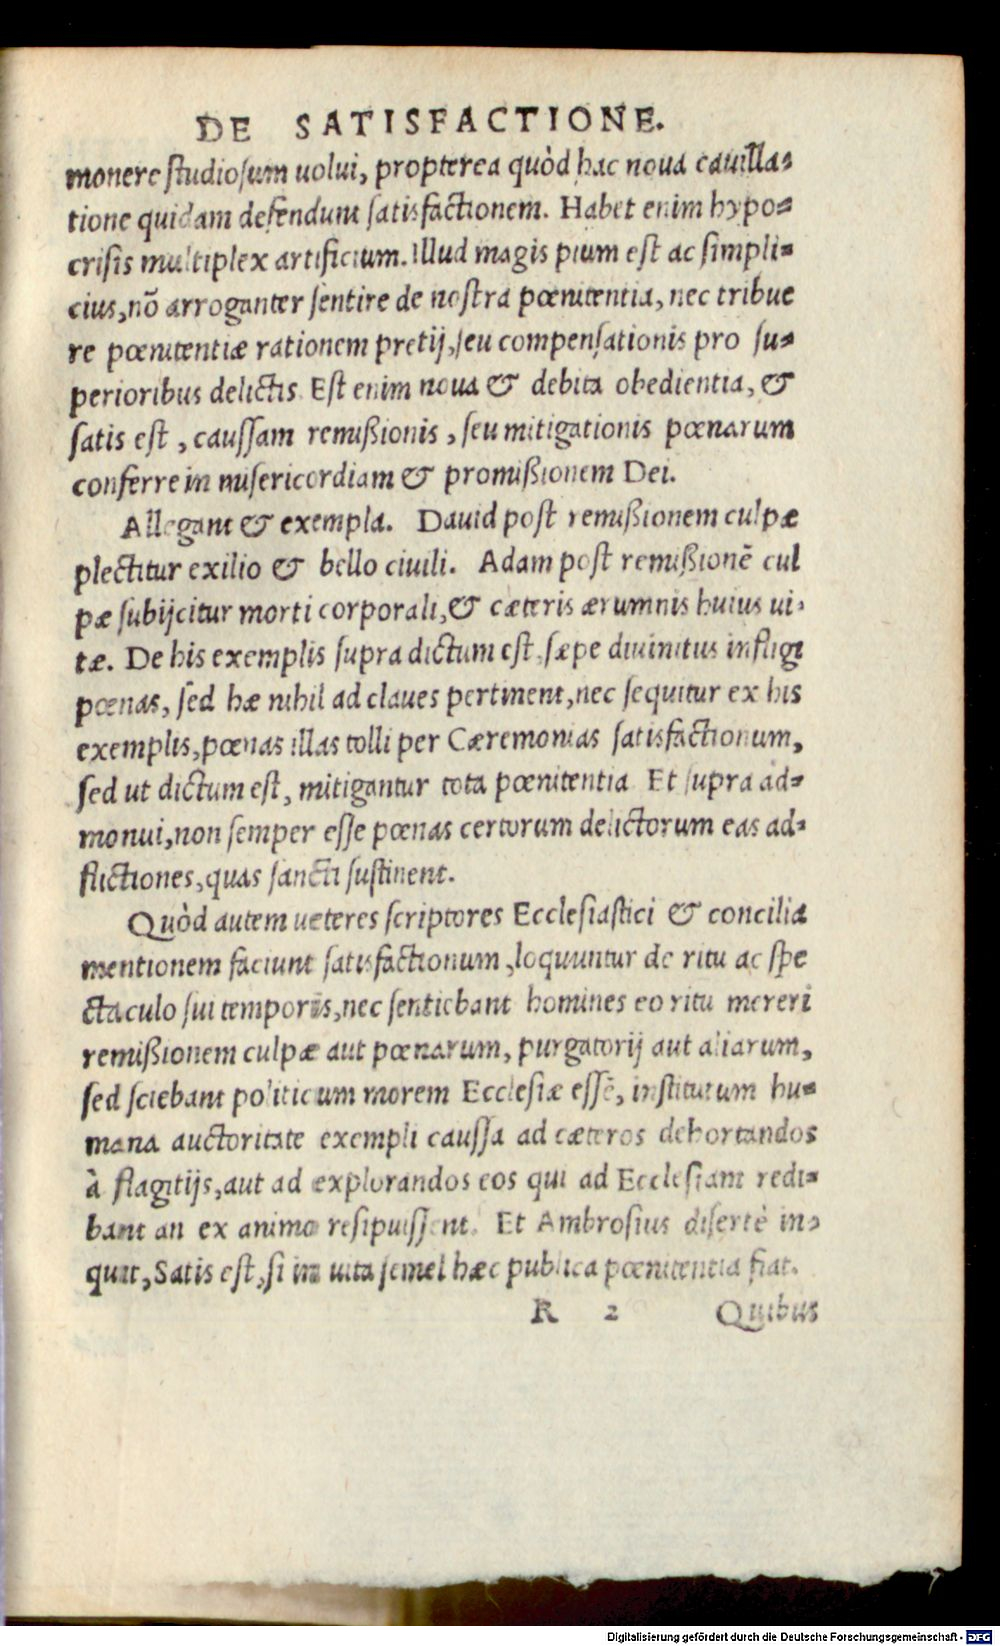 DE SATISFACTIONE.
monere studiosum uolui, propterea quòd hac noua cauilla=
tione quidam defendunt satisfactionem. Habet enim hypo=
crisis multiplex artificium. Illud magis pium est ac simpli=
cius, nō arroganter sentire de nostra pœnitentia, nec tribue
re pœnitentiæ rationem pretij, seu compensationis pro su=
perioribus delictis. Est enim noua & debita obedientia, &
satis est, caussam remißionis, seu mitigationis pœnarum
conferre in misericordiam & promißionem Dei.
Allegant & exempla. Dauid post remißionem culpæ
plectitur exilio & bello ciuili. Adam post remißionē cul
pæ subijcitur morti corporali, & cæteris ærumnis huius ui=
tæ. De his exemplis supra dictum est, sæpe diuinitus infligi
pœnas, sed hæ nihil ad claues pertinent, nec sequitur ex his
exemplis, pœnas illas tolli per Cæremonias satisfactionum,
sed ut dictum est, mitigantur tota pœnitentia. Et supra ad=
monui, non semper esse pœnas certorum delictorum eas ad=
flictiones, quas sancti sustinent.
Quòd autem ueteres scriptores Ecclesiastici & concilia
mentionem faciunt satisfactionum, loquuntur de ritu ac spe
ctaculo sui temporis, nec sentiebant homines eo ritu mereri
remißionem culpæ aut pœnarum, purgatorij aut aliarum,
sed sciebant politicum morem Ecclesiæ essē, institutum hu=
mana auctoritate exempli caussa ad cæteros dehortandos
à flagitijs, aut ad explorandos eos qui ad Ecclesiam redi=
bant an ex animo resipuissent. Et Ambrosius disertè in=
quit, Satis est, si in uita semel hæc publica pœnitentia fiat.
R 2 Quibus
Digitalisierung gefördert durch die Deutsche Forschungsgemeinschaft - DFG